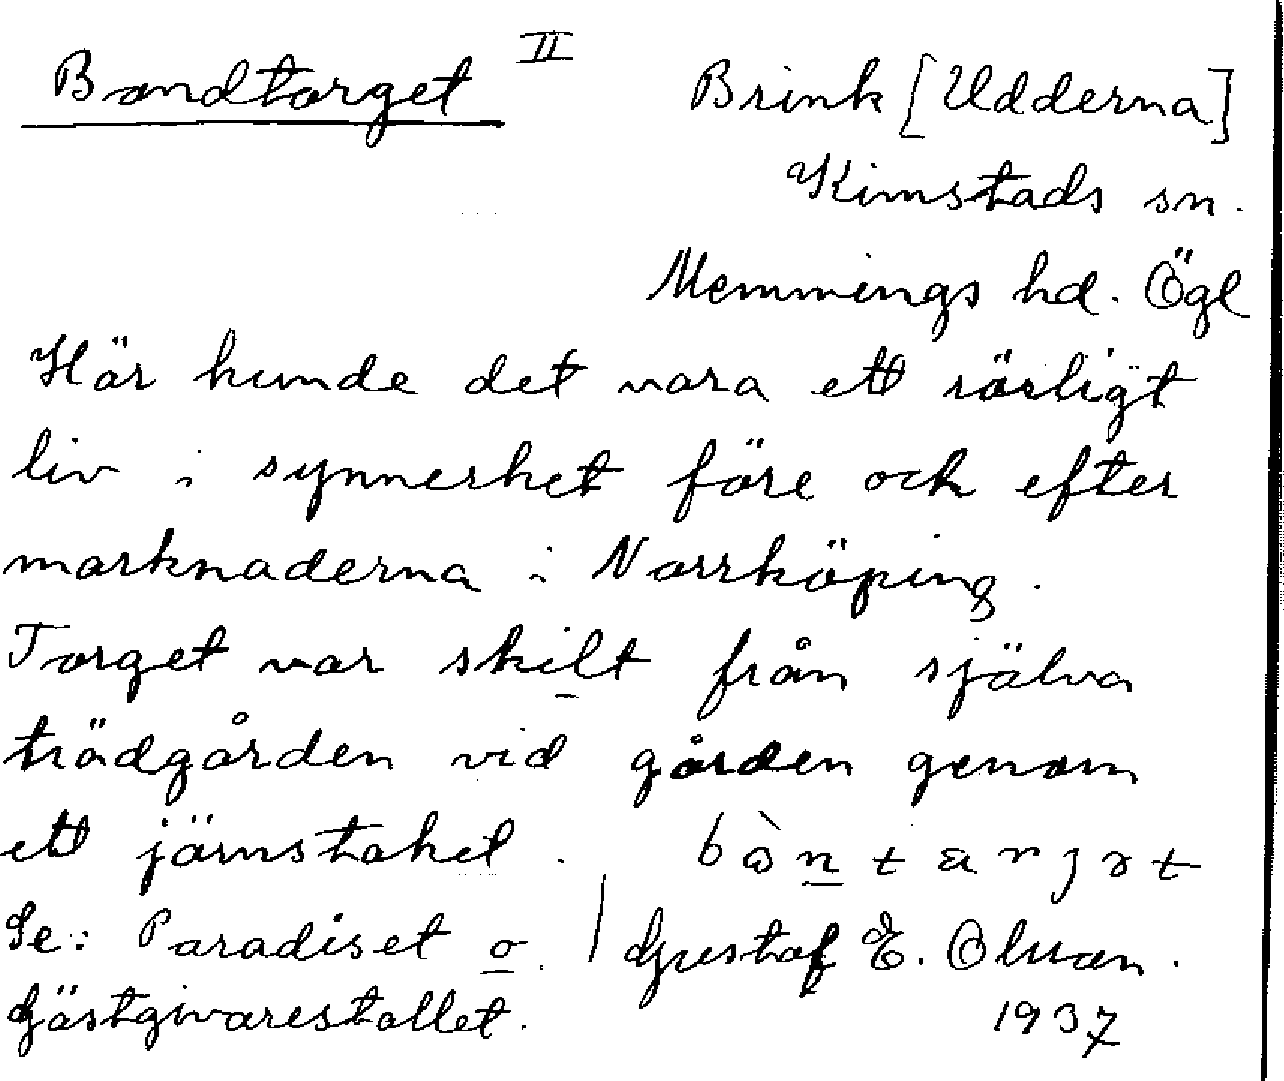 Bondtorget II
Brink [Udderna]
Kimstads sn.
Memmings hd. Ögl
Här kunde det vara ett rörligt
liv i synnerhet före och efter
marknaderna i Norrköping.
Torget var skilt från själva
trädgården vid gården genom
ett järnstaket. bɷ̀ntarjət
Se: Paradiset o. / Gustaf E. Olson.
Gästgivarestallet. 1937